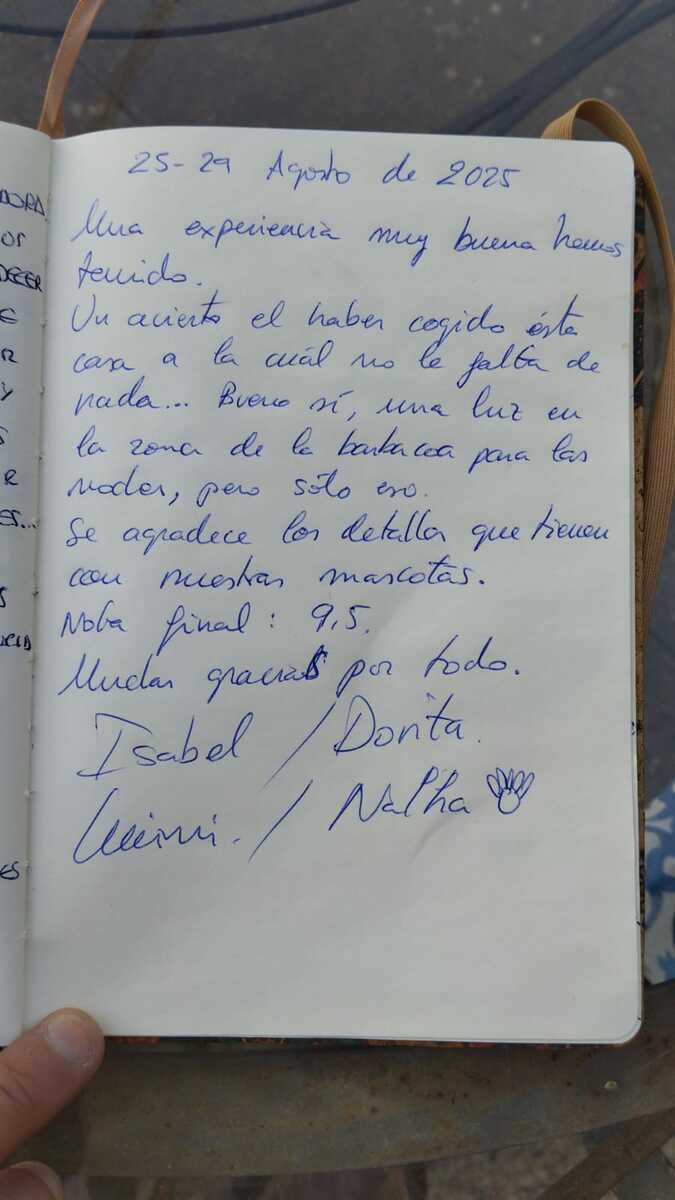 DORA
OS
DECER
E
R
Y
S
R
ES...
S
ES
25-29 Agosto de 2025
Una experiencia muy buena hemos
tenido.
Un acierto el haber cogido ésta
casa a la cuál no le falta de
nada... Bueno sí, una luz en
la zona de la barbacoa para las
noches, pero sólo eso.
Se agradece los detalles que tienen
con nuestras mascotas.
Nota final: 9,5.
Muchas gracias por todo.
Isabel / Dorita.
Mimi. / Nalha